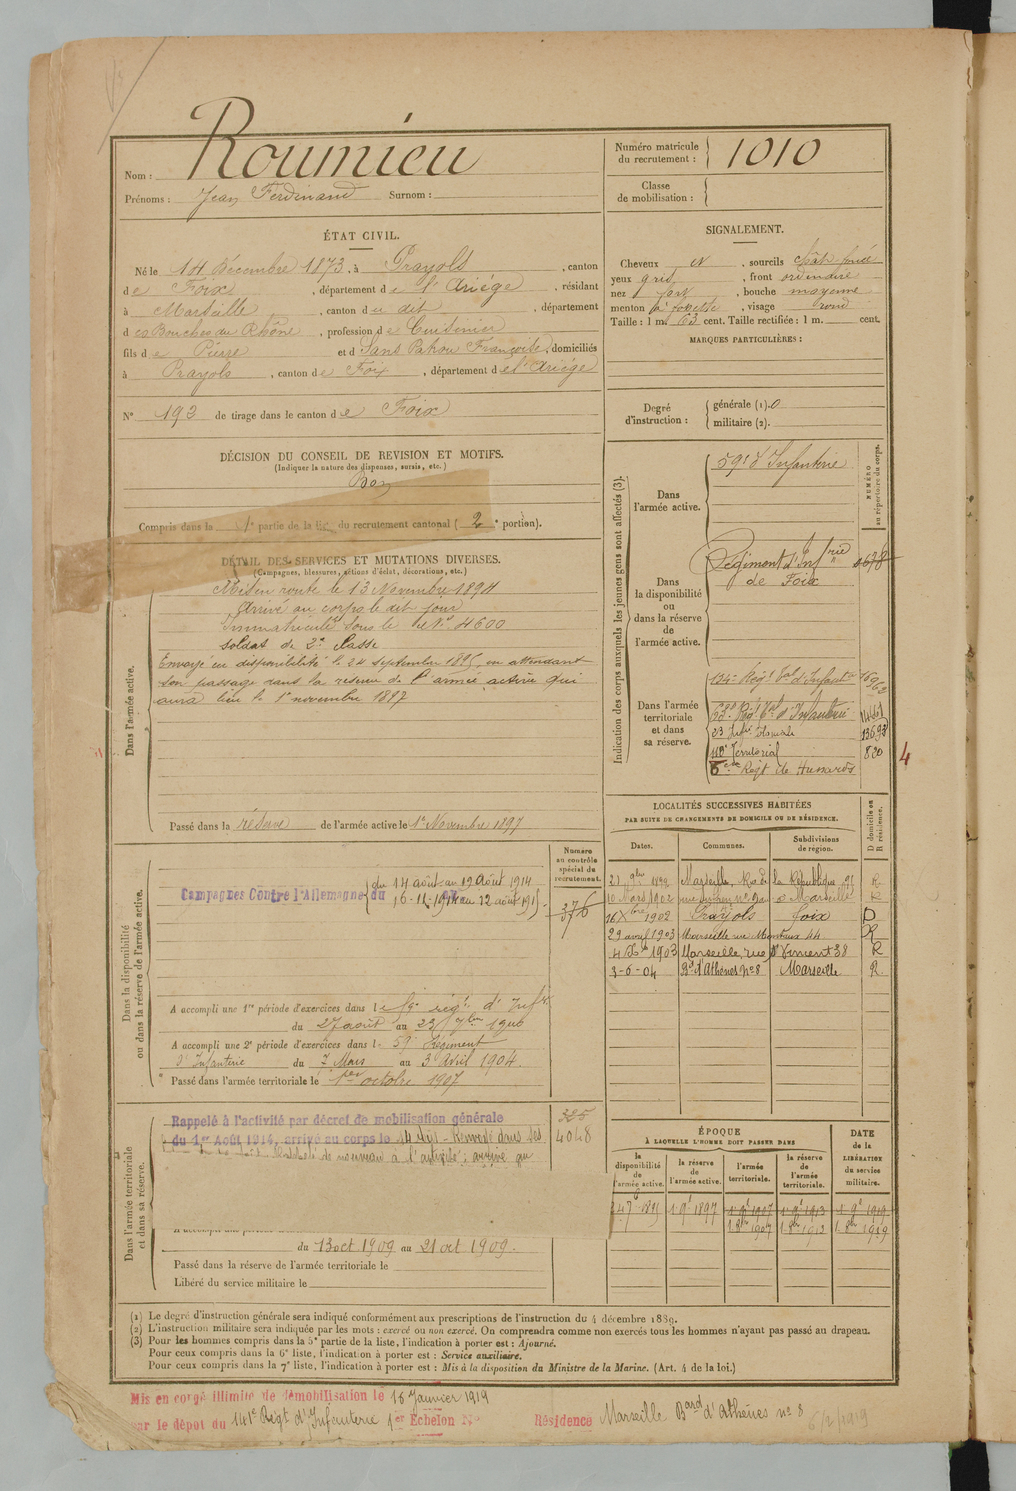 Nom : Roumieu
Prénoms : Jean Ferdinand Surnom :
Numéro matricule du recrutement : 1010
Classe de mobilisation :
ÉTAT CIVIL.
Né le 14 Décembre 1873, à Prayols, canton
de Foix, département de l'Ariège, résidant
à Marseille, canton du dit, département
des Bouches du Rhône, profession de Cuisinier
fils de Pierre et d Sans Pahou Françoise, domiciliés
à Prayols, canton de Foix, département de l'Ariège
N° 193 de tirage dans le canton de Foix
SIGNALEMENT.
Cheveux et, sourcils chât-foncé
yeux gris, front ordinaire
nez fort, bouche moyenne
menton à fossette, visage rond
Taille : 1 m. 63 cent. Taille rectifiée : 1 m. cent.
MARQUES PARTICULIÈRES :
Degré d'instruction : générale (1). 0
militaire (2).
DÉCISION DU CONSEIL DE REVISION ET MOTIFS.
(Indiquer la nature des dispenses, sursis, etc.)
Bon
Compris dans la 1re partie de la liste du recrutement cantonal (2e portion).
DÉTAIL DES SERVICES ET MUTATIONS DIVERSES.
(Campagnes, blessures, actions d'éclat, décorations, etc.)
Dans l'armée active.
Mis en route le 13 Novembre 1894
Arrivé au corps le dit jour
Immatriculé sous le N° 4600
soldat de 2e classe
Envoyé en disponibilité le 24 septembre 1895, en attendant
son passage dans la réserve de l'armée active qui
aura lieu le 1er novembre 1897
Passé dans la réserve de l'armée active le 1er Novembre 1897
Indication des corps auxquels les jeunes gens sont affectés (3).
NUMÉRO au répertoire du corps.
Dans l'armée active.
59e d'Infanterie
Dans la disponibilité ou dans la réserve de l'armée active.
Régiment d'Infrie
de Foix
Dans l'armée territoriale et dans sa réserve.
134e Régt Tal d'Infante
63e Régt Tal d'Infanterie
23 Infie Coloniale
118e Territorial 820
6ème Régt de Hussards
4
Dans la disponibilité ou dans la réserve de l'armée active.
Numéro au contrôle spécial du recrutement.
376
Campagnes Contre l'Allemagne du
du 14 août au 19 Août 1914
16-11-1914 au 12 août 1915
A accompli une 1re période d'exercices dans le 59e régt d'Infie
du 27 août au 23 7bre 1900
A accompli une 2e période d'exercices dans l 59e Régiment
d'Infanterie du 7 Mars au 3 Avril 1904.
Passé dans l'armée territoriale le 1er octobre 1907
LOCALITÉS SUCCESSIVES HABITÉES
PAR SUITE DE CHANGEMENTS DE DOMICILE OU DE RÉSIDENCE.
Dates. Communes. Subdivisions de région. D domicile ou R résidence.
Marseille, Rue de la République 95 R
10 Mars 1902 Marseille R
16 Xbre 1902 Prayols Foix D
29 avril 1903 Marseille rue Montaux 44 R
1903 Marseille, rue St Vincent 38 R
3-6-04 Bd d'Athènes n° 8 Marseille R
Dans l'armée territoriale et dans sa réserve.
325
4048
Rappelé à l'activité par décret de mobilisation générale
du 1er Août 1914, arrivé au corps le 14 Août - Renvoyé dans ses
Rappelé de nouveau à l'activité ; arrivé au
du 13 oct 1909 au 21 oct 1909.
Passé dans la réserve de l'armée territoriale le
Libéré du service militaire le
ÉPOQUE
À LAQUELLE L'HOMME DOIT PASSER DANS
la disponibilité de l'armée active. la réserve de l'armée active. l'armée territoriale. la réserve de l'armée territoriale. DATE de la LIBÉRATION du service militaire.
1 9e 1897 1 9e 1907 1 9e 1913 1 9e 1919
1 8bre 1907 1 8bre 1913 1 8bre 1919
(1) Le degré d'instruction générale sera indiqué conformément aux prescriptions de l'instruction du 4 décembre 1889.
(2) L'instruction militaire sera indiquée par les mots : exercé ou non exercé. On comprendra comme non exercés tous les hommes n'ayant pas passé au drapeau.
(3) Pour les hommes compris dans la 5e partie de la liste, l'indication à porter est : Ajourné.
Pour ceux compris dans la 6e liste, l'indication à porter est : Service auxiliaire.
Pour ceux compris dans la 7e liste, l'indication à porter est : Mis à la disposition du Ministre de la Marine. (Art. 4 de la loi.)
Mis en congé illimité de démobilisation le 16 Janvier 1919
par le dépôt du 141e Régt d'Infanterie 1er Échelon N°
Résidence Marseille Bard d'Athènes n° 8
6/2/1919